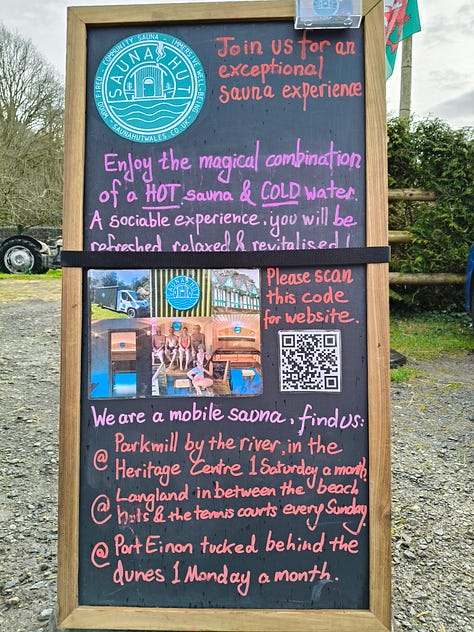 WOOD FIRED · COMMUNITY SAUNA · IMMERSIVE WELL-BEING
SAUNA HUT
SAUNAHUTWALES.CO.UK
Join us for an
exceptional
sauna experience
Enjoy the magical combination
of a HOT sauna & COLD water.
A sociable experience, you will be
refreshed, relaxed & revitalised!
SAUNA HUT
Please scan
this code
for website.
We are a mobile sauna, find us:
@ Parkmill by the river, in the
Heritage Centre 1 Saturday a month
@ Langland in between the beach
huts & the tennis courts every Sunday
@ Port Einon tucked behind the
dunes 1 Monday a month.